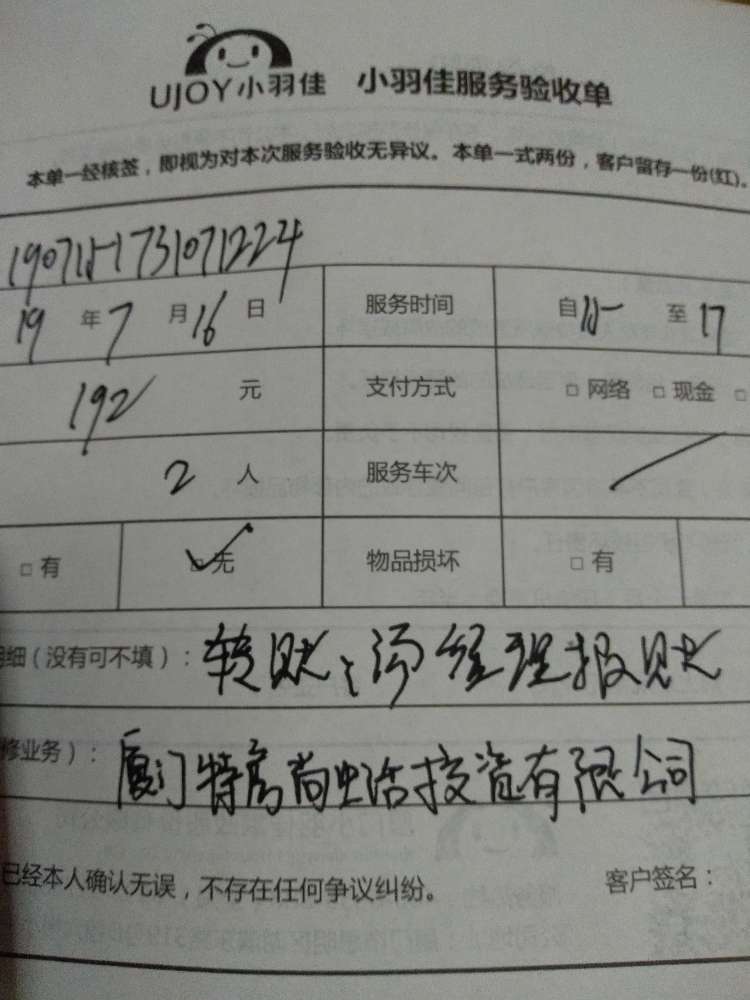 UJOY小羽佳 小羽佳服务验收单
本单一经核签，即视为对本次服务验收无异议。本单一式两份，客户留存一份(红)。
190715-1731071224
19 年 7 月 16 日 服务时间 自 15 至 17
192 元 支付方式 □ 网络 □ 现金 □
2 人 服务车次
□ 有 □ 无 物品损坏 □ 有
明细（没有可不填）： 转账：汤经理报账
修业务）： 厦门特房尚生活投资有限公司
已经本人确认无误，不存在任何争议纠纷。 客户签名：